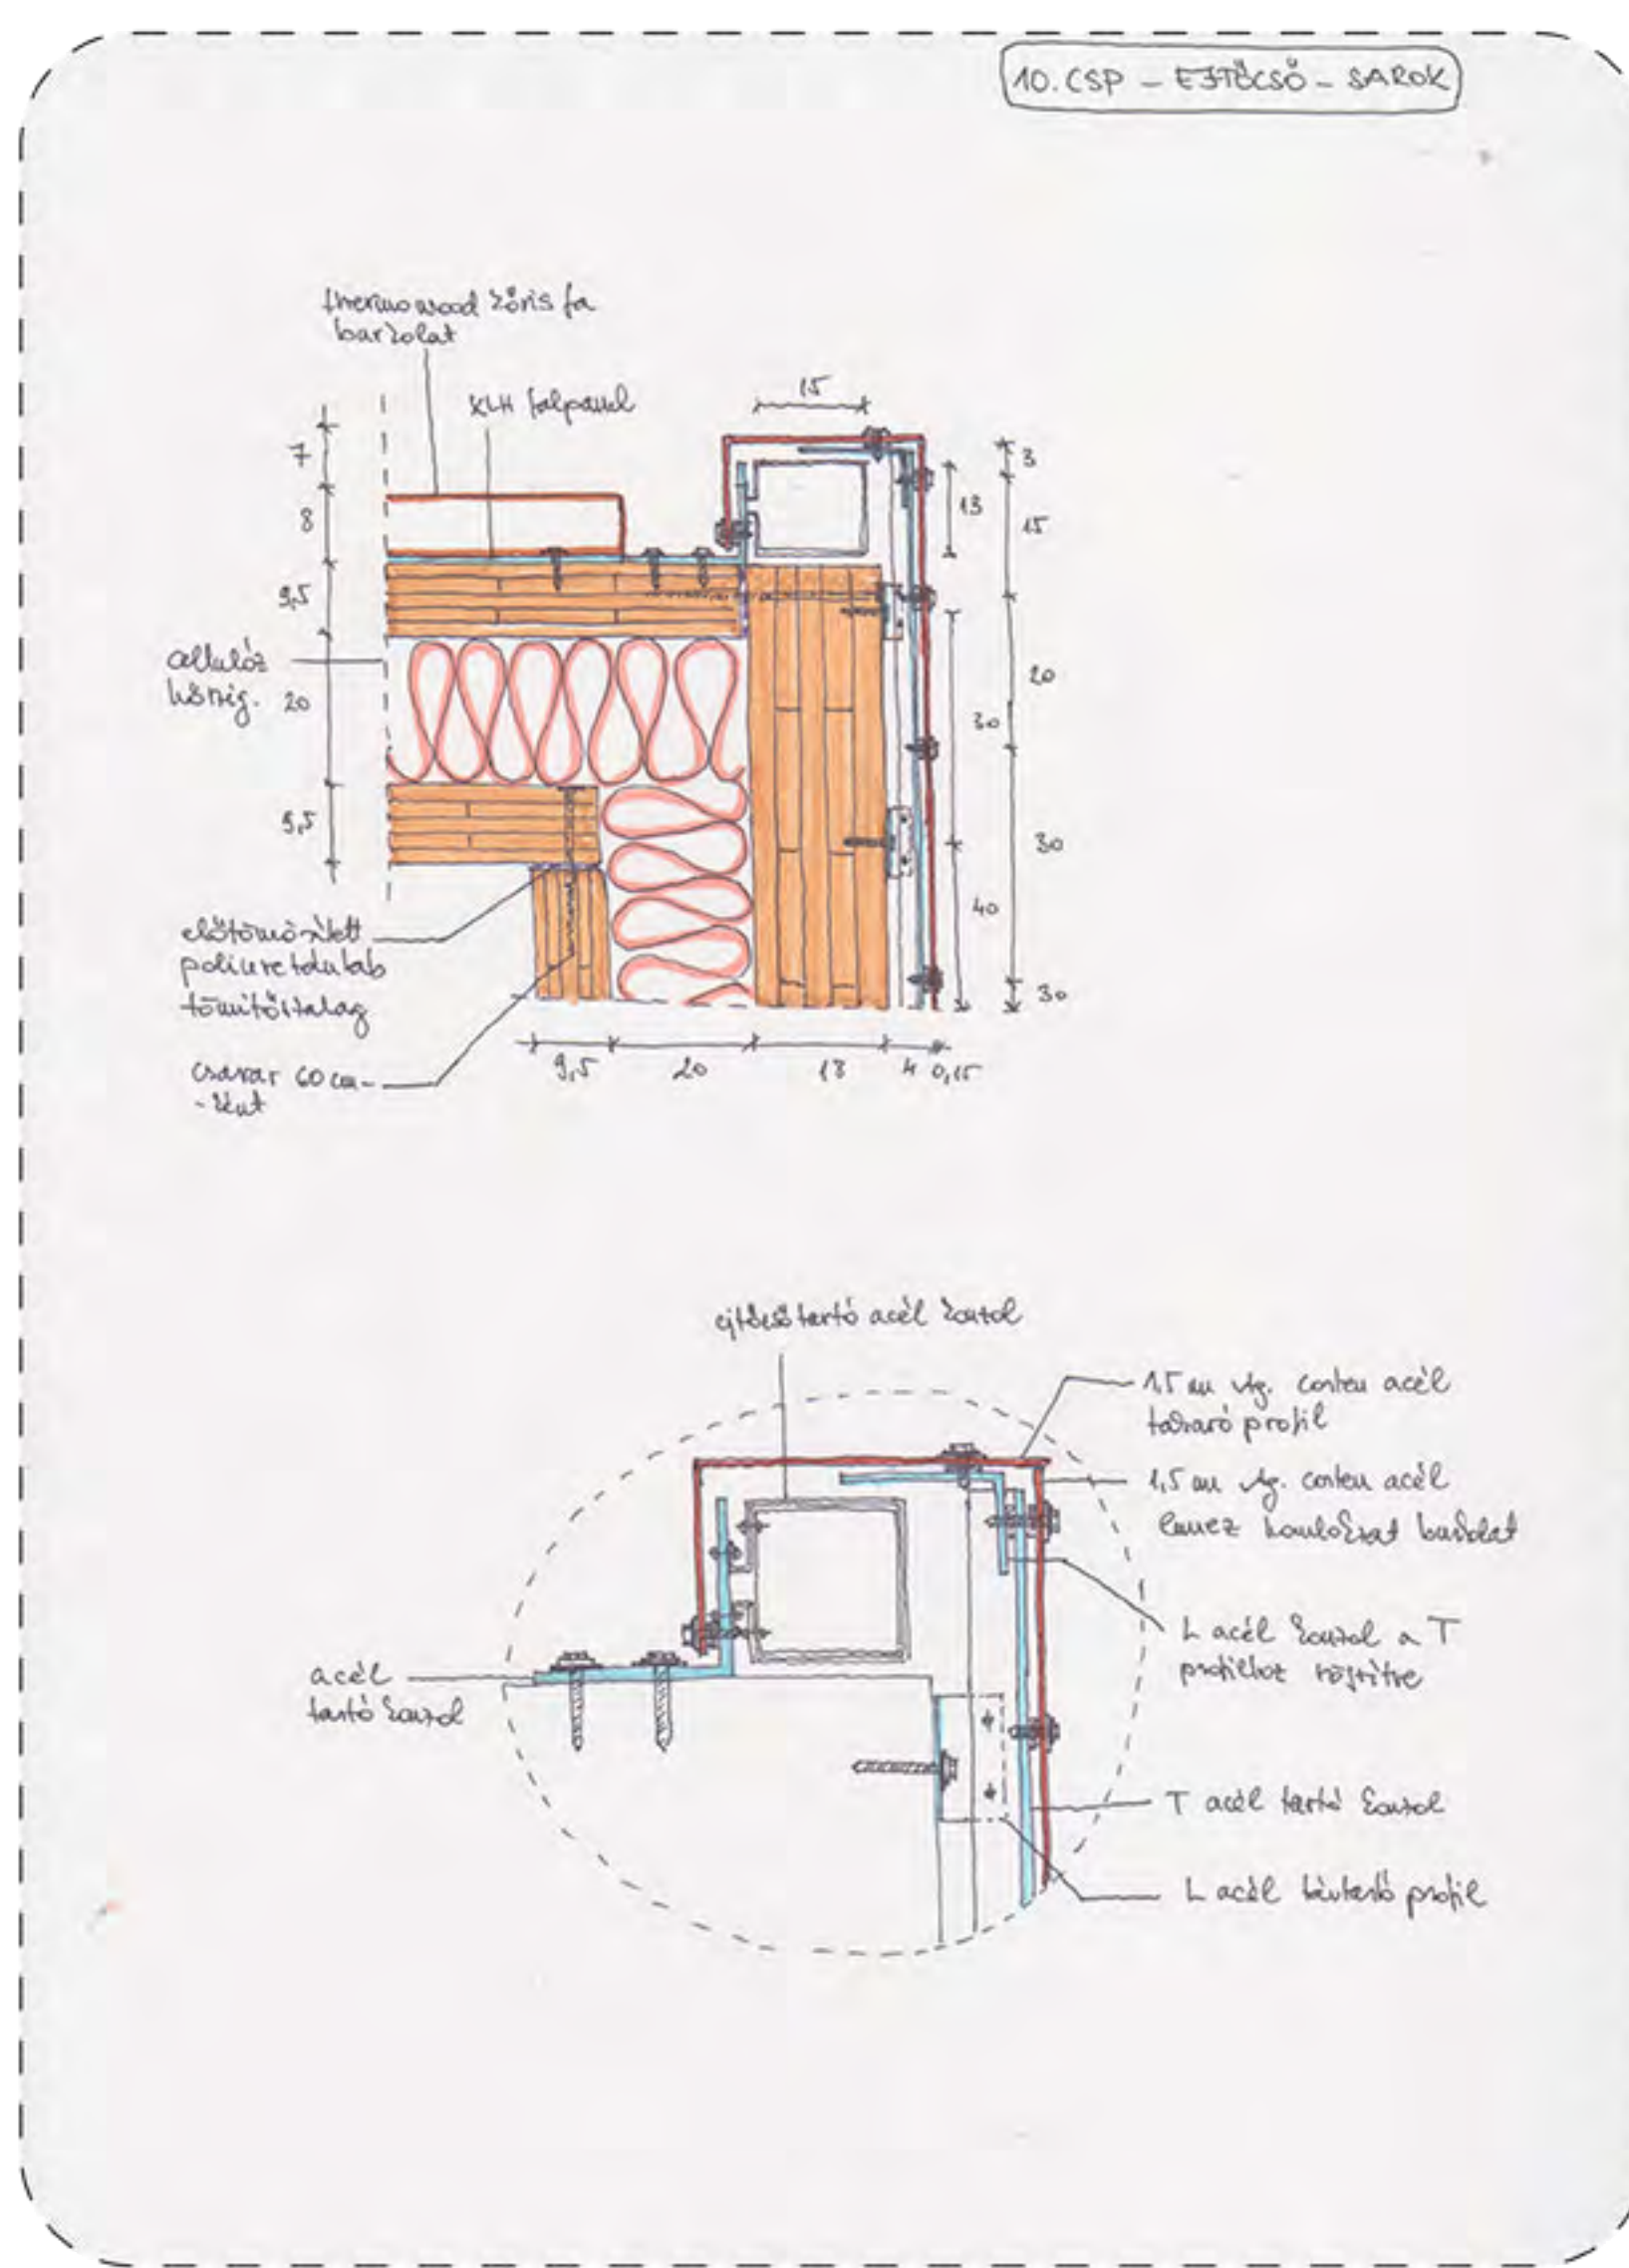 10. CSP - EJTŐCSŐ - SAROK
thermowood kőris fa
burkolat
KLH falpanel
15
7
8
9,5
20
9,5
3
13
15
20
30
30
40
30
cellulóz
hőszig.
előtömörített
poliuretánhab
tömítőszalag
csavar 60 cm-
-ként
9,5
20
18
4
0,15
ejtőcsőtartó acél konzol
1,5 mm vtg. corten acél
takaró profil
1,5 mm vtg. corten acél
lemez homlokzat burkolat
L acél konzol a T
profilhoz rögzítve
acél
tartó konzol
T acél tartó konzol
L acél távtartó profil